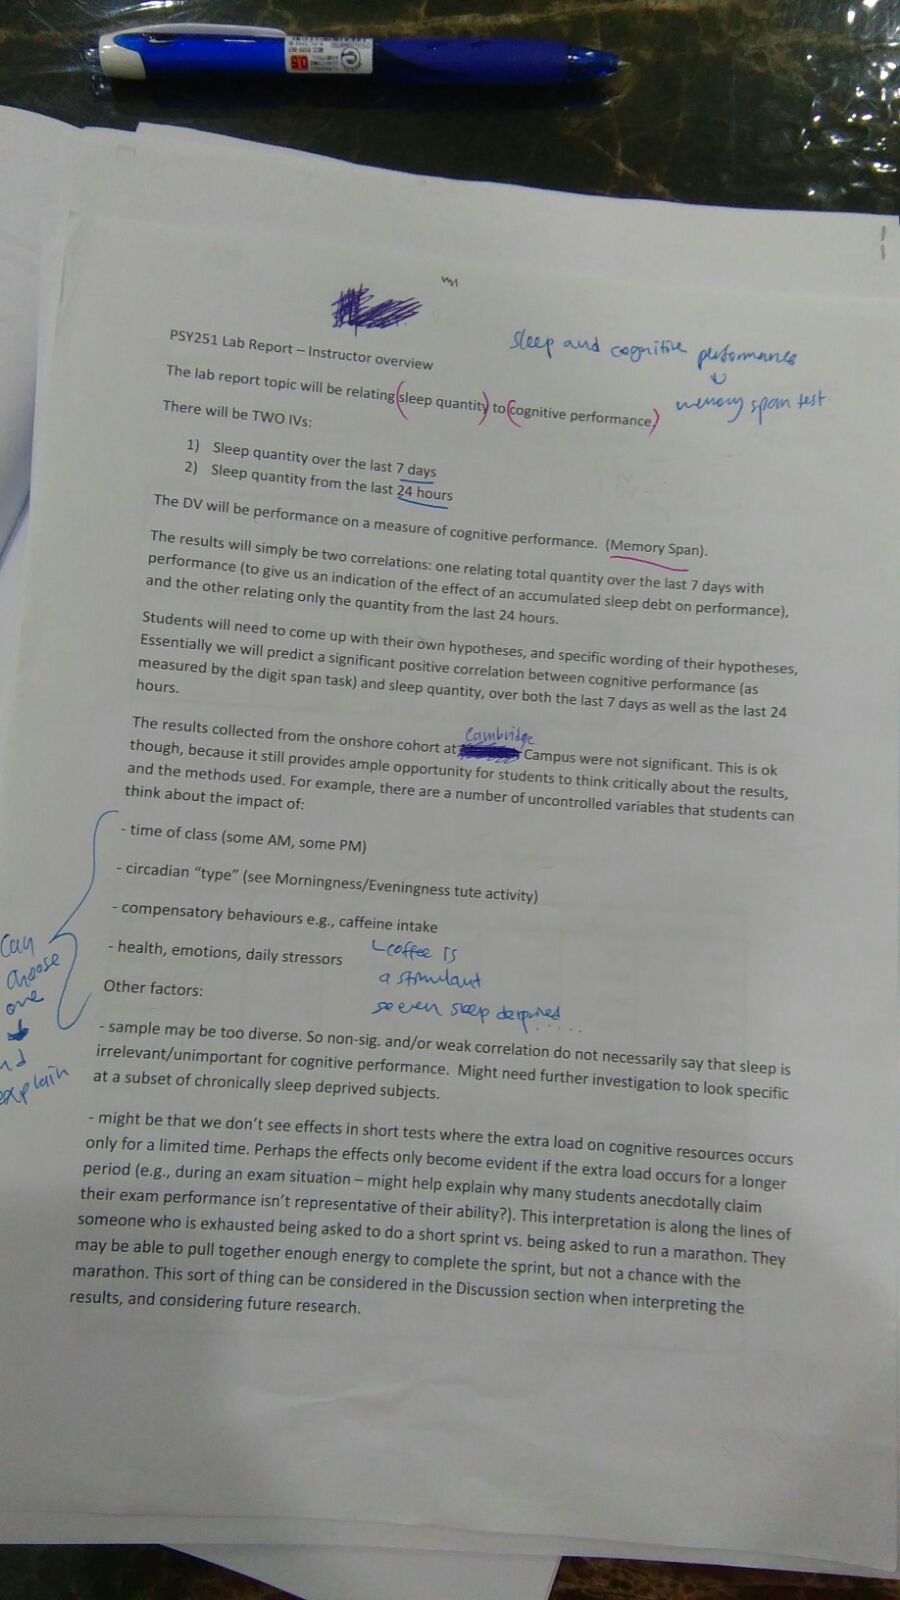 0.5
PSY251 Lab Report – Instructor overview
sleep and cognitive performance
memory span test
The lab report topic will be relating sleep quantity to cognitive performance.
There will be TWO IVs:
1) Sleep quantity over the last 7 days
2) Sleep quantity from the last 24 hours
The DV will be performance on a measure of cognitive performance. (Memory Span).
The results will simply be two correlations: one relating total quantity over the last 7 days with
performance (to give us an indication of the effect of an accumulated sleep debt on performance),
and the other relating only the quantity from the last 24 hours.
Students will need to come up with their own hypotheses, and specific wording of their hypotheses,
Essentially we will predict a significant positive correlation between cognitive performance (as
measured by the digit span task) and sleep quantity, over both the last 7 days as well as the last 24
hours.
Cambridge
The results collected from the onshore cohort at Campus were not significant. This is ok
though, because it still provides ample opportunity for students to think critically about the results,
and the methods used. For example, there are a number of uncontrolled variables that students can
think about the impact of:
- time of class (some AM, some PM)
- circadian “type” (see Morningness/Eveningness tute activity)
- compensatory behaviours e.g., caffeine intake
coffee is
a stimulant
so even sleep deprived.....
- health, emotions, daily stressors
can
choose
one
explain
Other factors:
- sample may be too diverse. So non-sig. and/or weak correlation do not necessarily say that sleep is
irrelevant/unimportant for cognitive performance. Might need further investigation to look specific
at a subset of chronically sleep deprived subjects.
- might be that we don’t see effects in short tests where the extra load on cognitive resources occurs
only for a limited time. Perhaps the effects only become evident if the extra load occurs for a longer
period (e.g., during an exam situation – might help explain why many students anecdotally claim
their exam performance isn’t representative of their ability?). This interpretation is along the lines of
someone who is exhausted being asked to do a short sprint vs. being asked to run a marathon. They
may be able to pull together enough energy to complete the sprint, but not a chance with the
marathon. This sort of thing can be considered in the Discussion section when interpreting the
results, and considering future research.